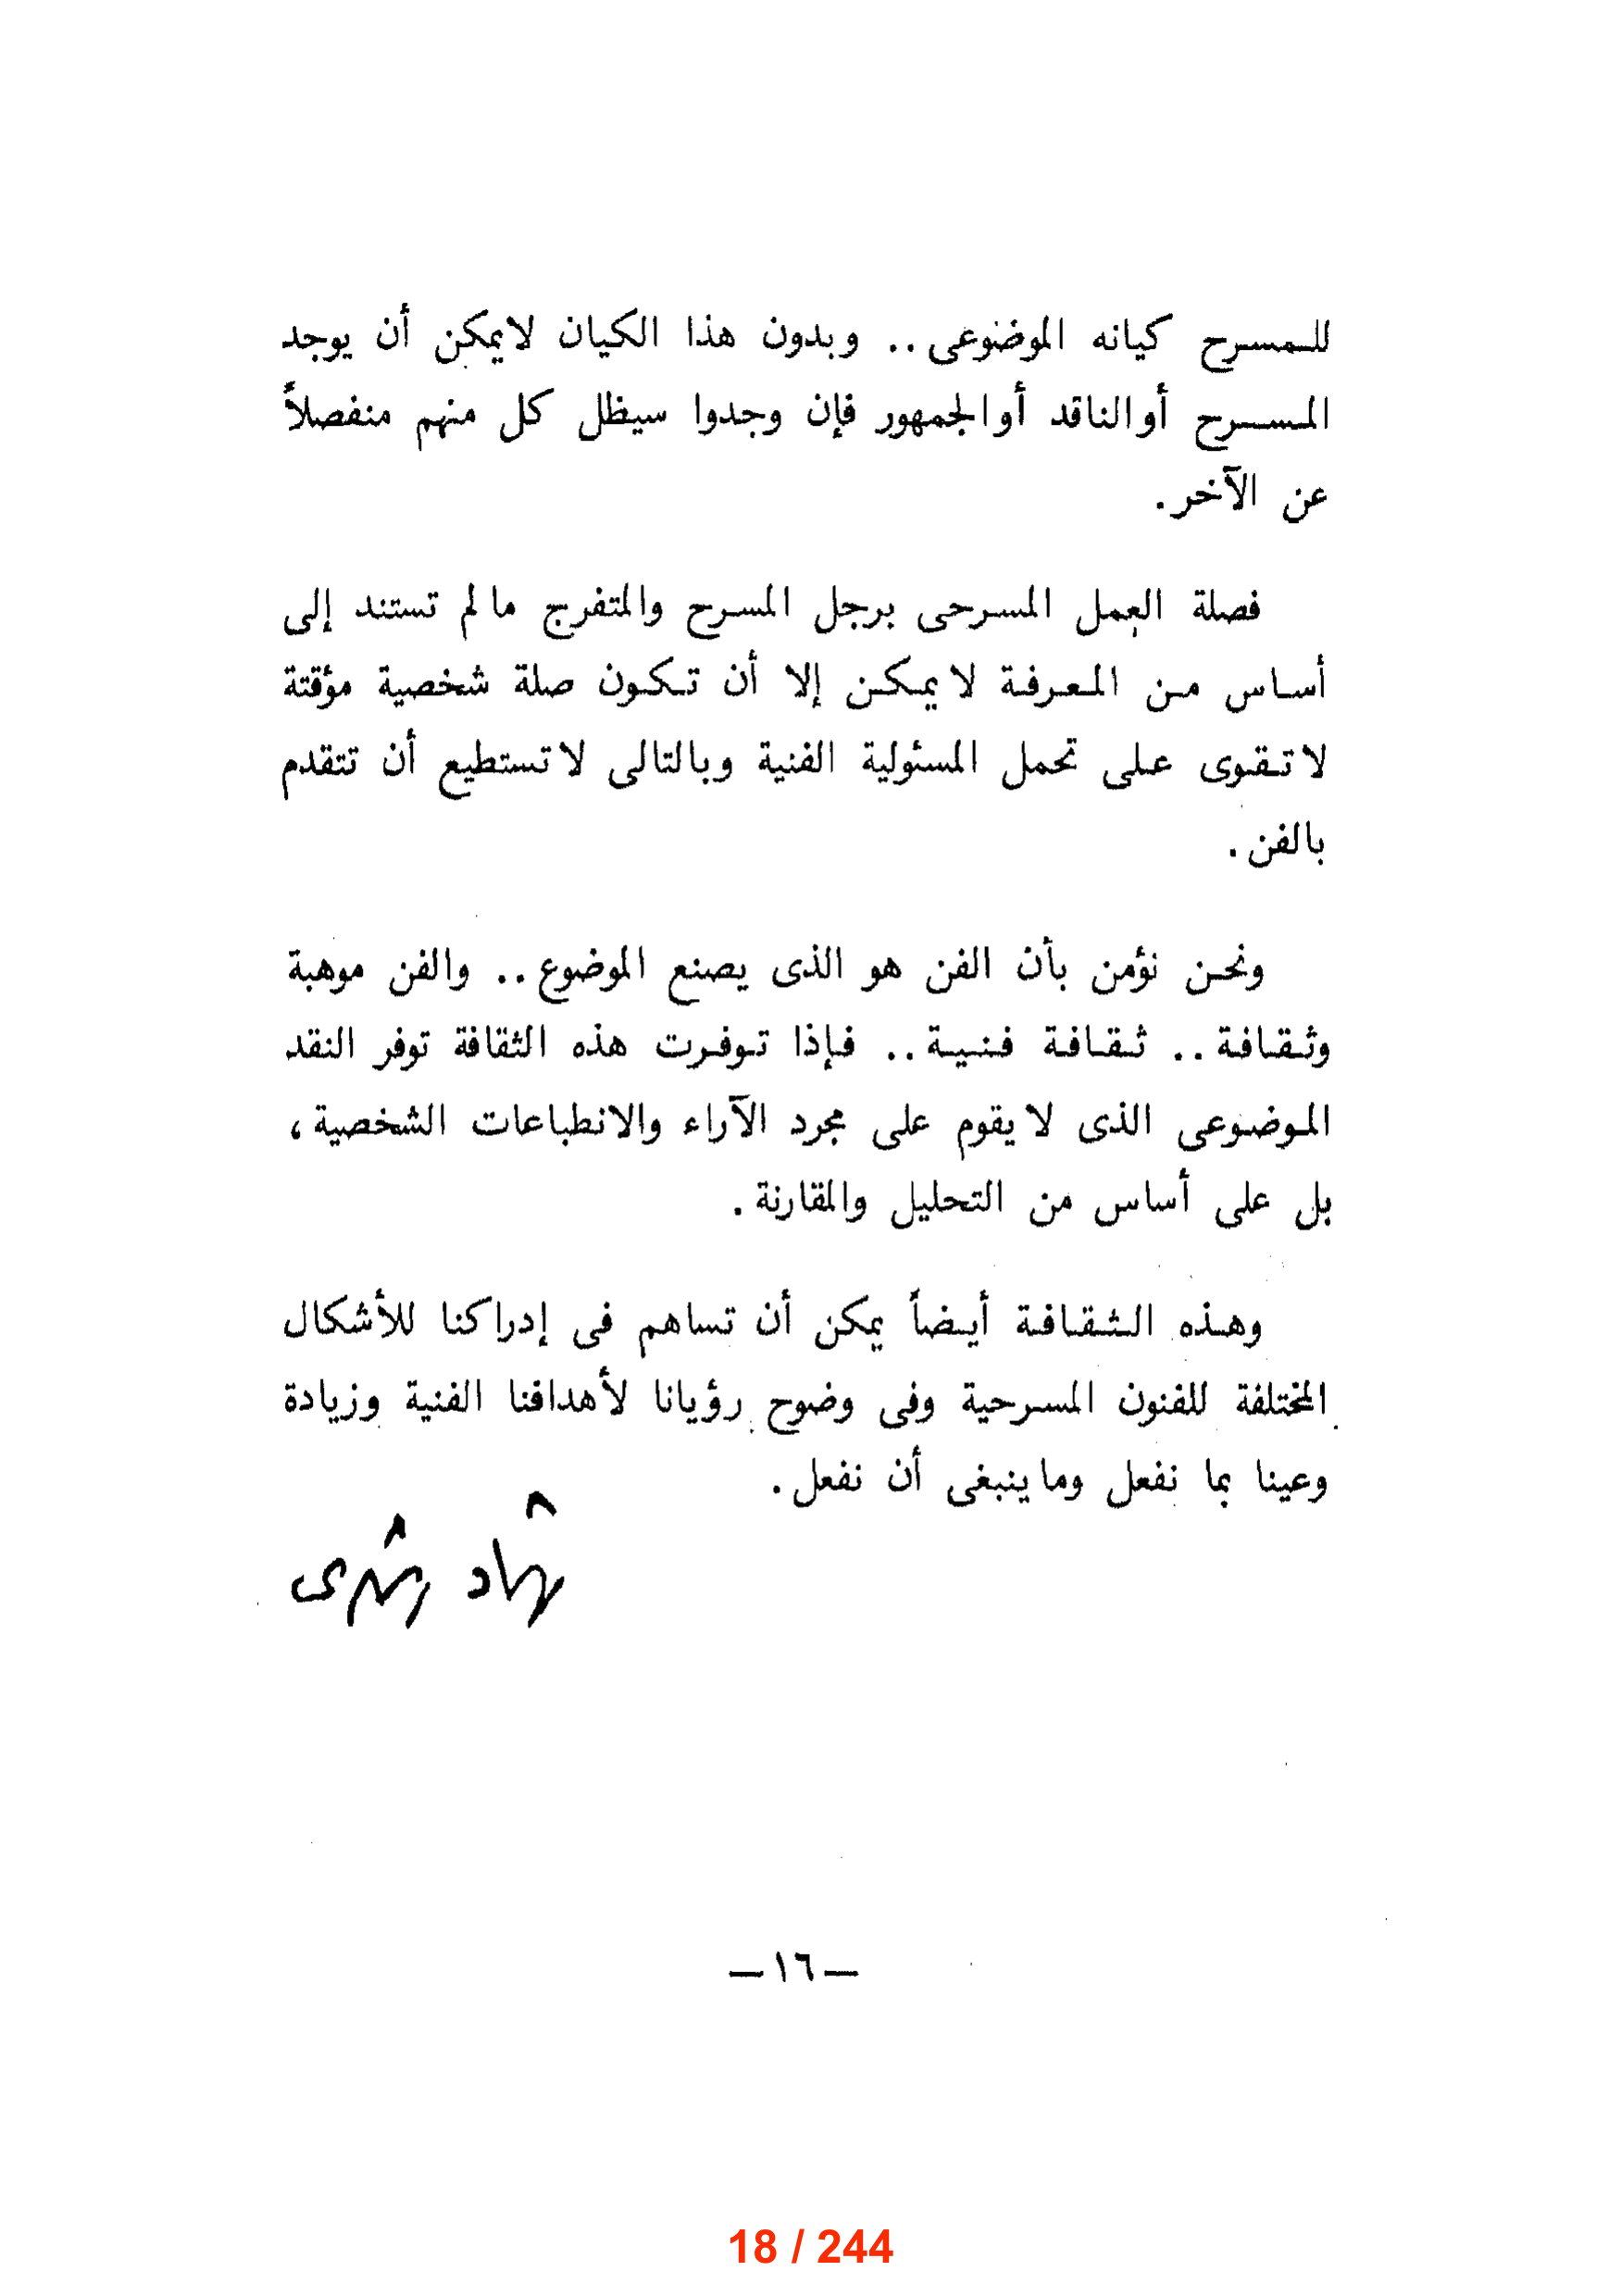 للمسرح كيانه الموضوعى .. وبدون هذا الكيان لايمكن أن يوجد
المسرح أو الناقد أو الجمهور فإن وجدوا سيظل كل منهم منفصلاً
عن الآخر .
فصلة العمل المسرحى برجل المسرح والمتفرج ما لم تستند إلى
أساس من المعرفة لا يمكن إلا أن تكون صلة شخصية مؤقتة
لا تقوى على تحمل المسئولية الفنية وبالتالى لا تستطيع أن تتقدم
بالفن .
ونحن نؤمن بأن الفن هو الذى يصنع الموضوع .. والفن موهبة
وثقافة .. ثقافة فنية .. فإذا توفرت هذه الثقافة توفر النقد
الموضوعى الذى لا يقوم على مجرد الآراء والانطباعات الشخصية ،
بل على أساس من التحليل والمقارنة .
وهذه الثقافة أيضاً يمكن أن تساهم فى إدراكنا للأشكال
المختلفة للفنون المسرحية وفى وضوح رؤيانا لأهدافنا الفنية وزيادة
وعينا بما نفعل وما ينبغى أن نفعل .
رشاد رشدى
— ١٦ —
18 / 244